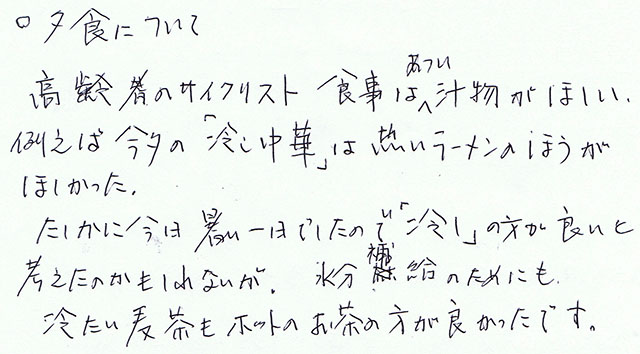 ○夕食について
高齢者のサイクリスト 食事はあつい汁物がほしい、
例えば今夕の「冷し中華」は熱いラーメンのほうが
ほしかった。
たしかに今日暑い一日でしたので「冷し」の方が良いと
考えたのかもしれないが、水分補給のためにも、
冷たい麦茶もホットのお茶の方が良かったです。